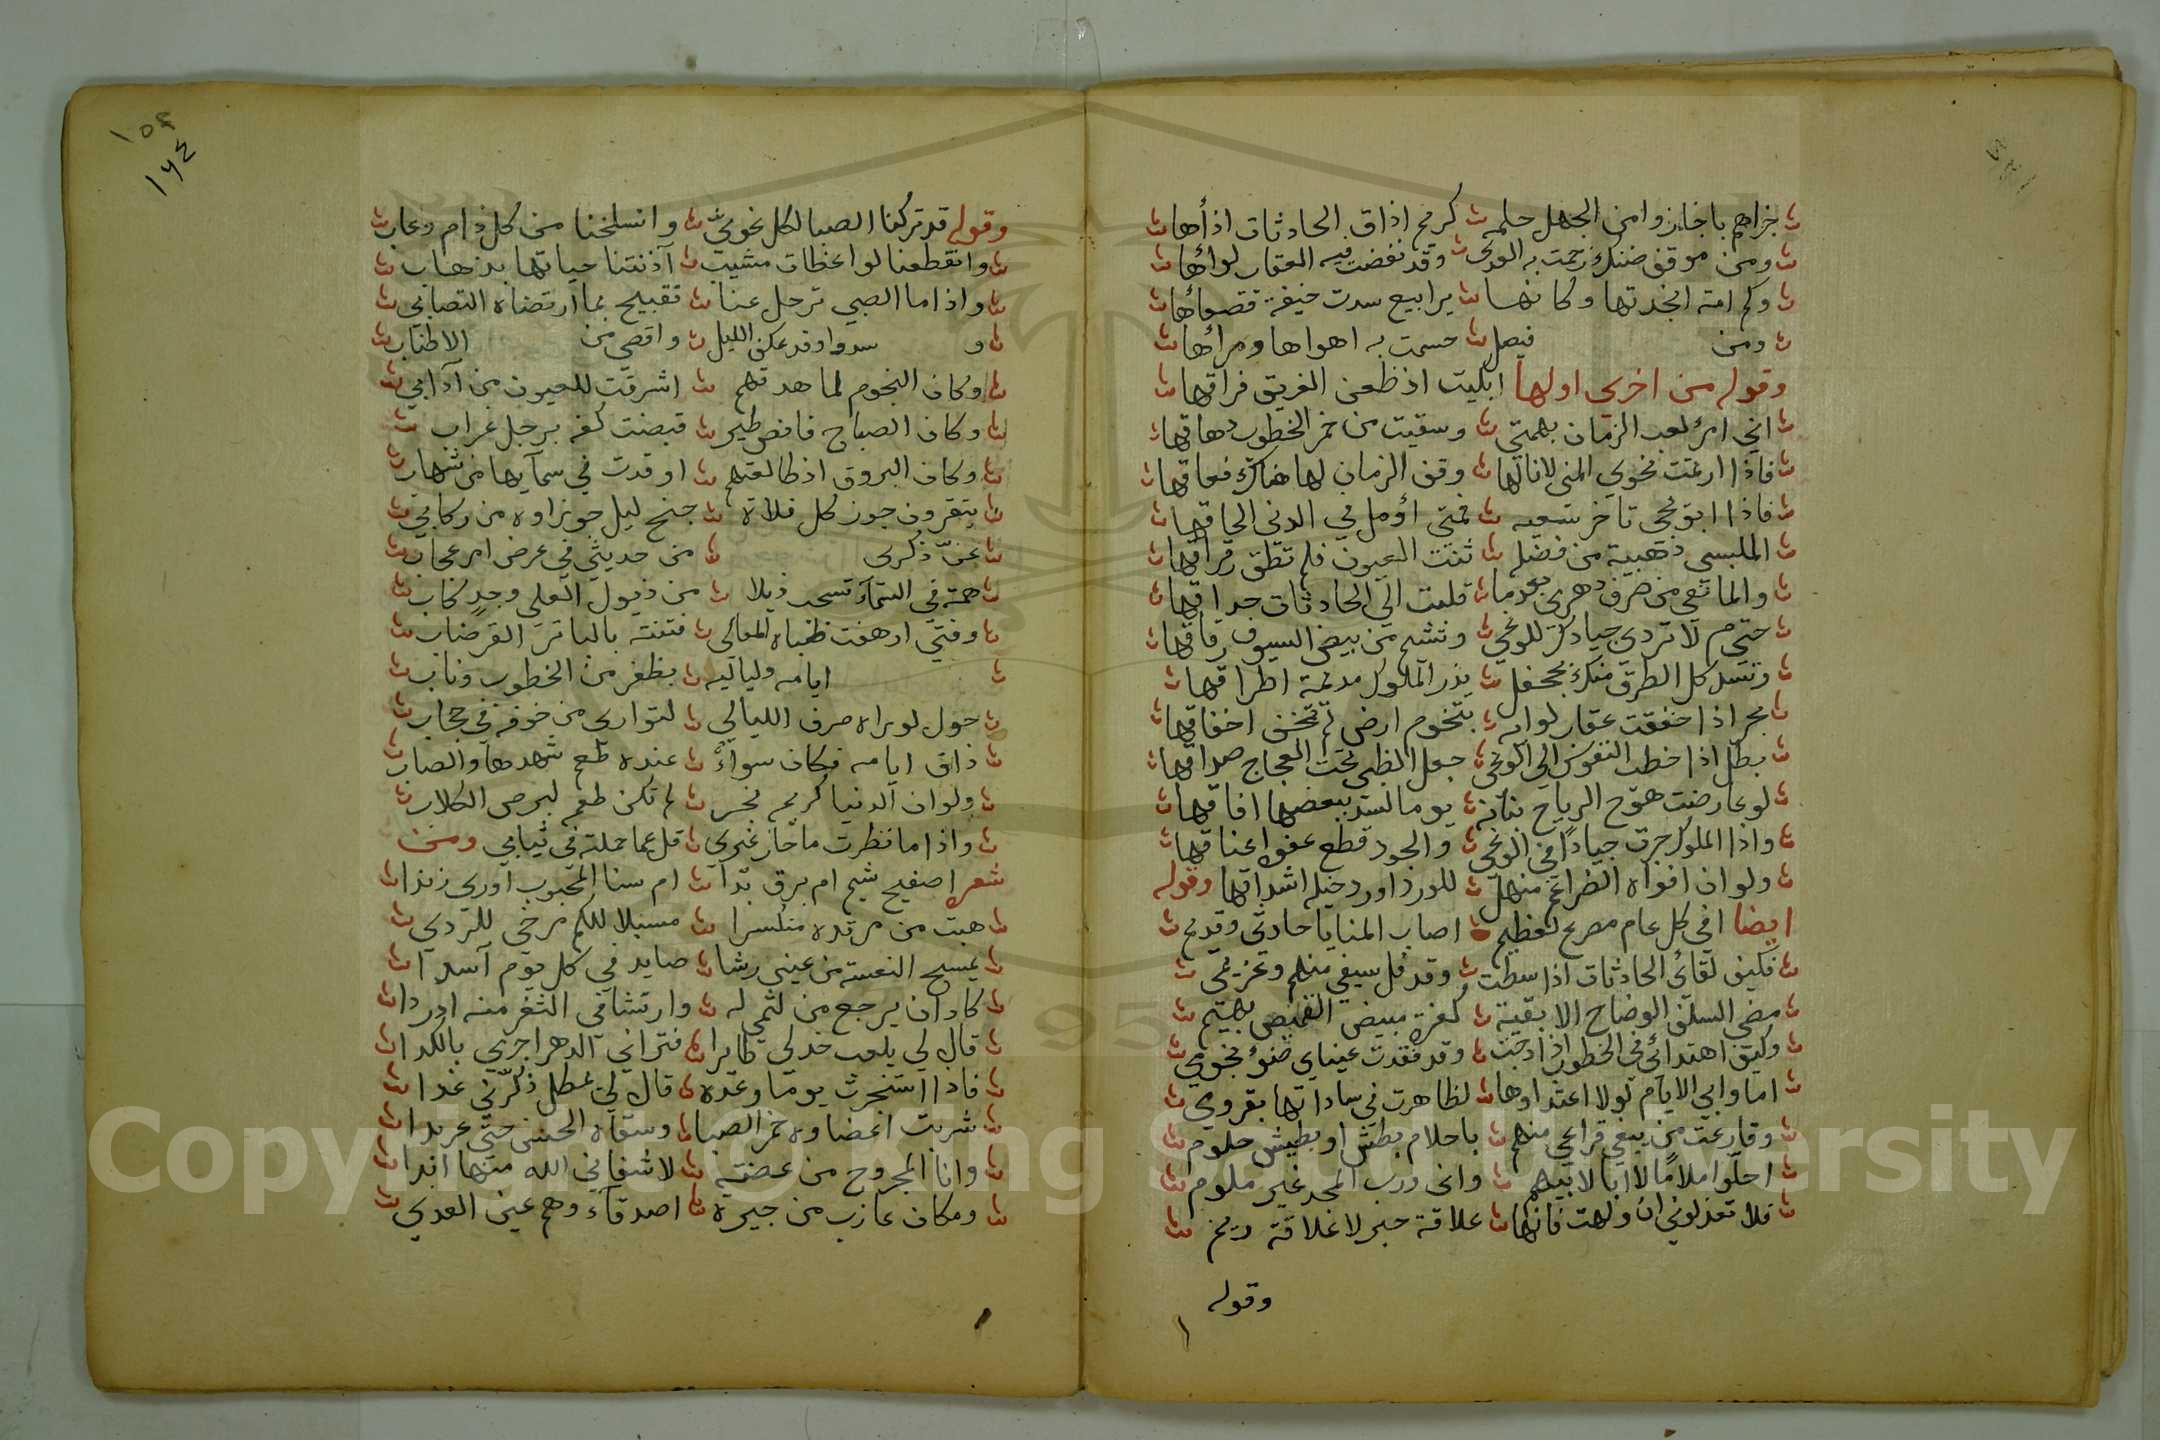 جزاهم باخار وامن الجهل حلمه كريم اذاق الحادثات اذأها
ومن موقف ضنك زحمت به العدى وقد نفضت فيه العقاب لوائها
وكم امة انجدتها وكانها يرابيع سدت خيفة قصعائها
ومن فيصل حسمت به اهواها ومرائها
وقوله من اخرى اولها ابليت اذ ظعن الفريق فراقها
اني امرؤ لعب الزمان بهمتي وسقيت من خمر الخطوب دهاقها
فاذا ارتمت نحوي المنى لانالها وقف الزمان لها هناك فعاقها
فاذا ابو يحيى تاخر سعيه فمتى اؤمل في الدنى الحاقها
الملبسي ذهبية من فضله ثنت العيون فلم تطق رقراقها
والمانعي من صرف دهري بعدما قلبت الي الحادثات حداقها
حتى م لا تردي جيادك للوغى وتشم من بيض السيوف رقاقها
وتسد كل الطرق منك بجحفل يذر الملوك مديمة اطراقها
مجر اذا خفقت عقاب لوايه بتخوم ارض لم تخف اخفاقها
بطل اذا خطب النفوس الى الوغى جعل الظبى تحت العجاج صداقها
لو عارضت هوج الرياح بنانه يوما لسد ببعضها افاقها
واذا الملوك جرت جيادا في الوغى والجود قطع عفوه اعناقها
ولو ان افواه الضراغم منهل للورد اورد خيله اشداقها وقوله
ايضا افي كل عام مصرع لعظيم اصاب المنايا حادثي وقديمي
فكيف لقائي الحادثات اذا سطت وقد فل سيفي منهم وعزيمي
مضى السلف الوضاح الا بقية كغرة مبيض القميص بهيم
وكيف اهتدائي في الخطوب اذا دجت وقد فقدت عيناي ضوء نجومي
اما وابي الايام لولا اعتداؤها لظاهرت في ساداتها بقرومي
وقارعت من يبغي قراعي منهم باحلام بطش او بطيش حلوم
احلوا ملاما لا ابا لابيهم واني ورب المجد غير ملوم
فلا تعذلوني ان ولهت فانها علاقة حبر لا علاقة ريم
وقوله
١٥٤
١٧٤
وقوله قد تركنا الصبا لكل غوي وانسلخنا من كل ذام وعاب
وانقطعنا لواعظات مشيب آذنتنا حياتها بذهاب
واذا ما الصبى ترحل عنا فقبيح بنا ارتضاه التصابي
و سدوا وقد عكف الليل واقصى من الاطناب
وكان النجوم لما هدتهم اشرقت للعيون من آدابي
وكان الصباح قانص طير قبضت كفه برجل غراب
وكان البروق اذ طالعتهم اوقدت في سمآيها من شهاب
يتقرون جوز كل فلاة جنح ليل جوزاوه من ركابي
عن ذكرى من حديثي في عرض امر عجاب
همة في السماء تسحب ذيلا من ذيول العلى وجد كاب
وفتى ارهفت ظباه المعالي فتنته بالباتر القرضاب
ايامه ولياليه بظفر من الخطوب وناب
حول لو يراه صرف الليالي لتوارى من خوفه في حجاب
ذاق ايامه فكان سواء عنده طعم شهدها والصاب
ولو ان الدنيا كريم نجر لم تكن طعم لبرص الكلاب
واذا ما نظرت ما حاز غيري قل عما حملته في ثيابي ومن
شعره اصفيح شيم ام برق بدا ام سنا المحبوب اورى زندا
هب من مرقده منكسرا مسبلا للكم مرخي للردي
يمسح النعسة من عيني رشا صايد في كل يوم آسدا
كاد ان يرجع من لثمي له وارتشافي الثغر منه ادردا
قال لي يلعب خد لي طايرا فتراني الدهر اجري بالكدا
فاذا استنجزت يوما وعده قال لي عطل ذكرني غدا
شربت اعضاوه خمر الصبا وسقاه الحسن حتى عربدا
وانا المجروح من عضته لا شفاني الله منها ابدا
ومكان عازب من جيرة اصدقاء وهم عين العدي